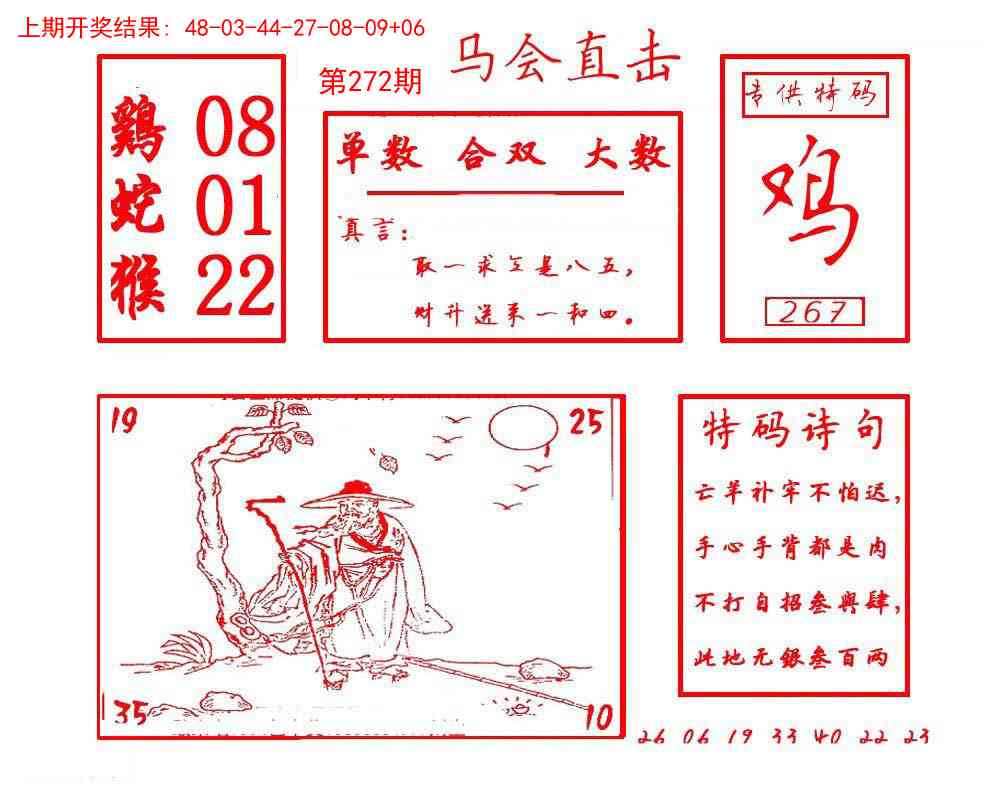 上期开奖结果：48-03-44-27-08-09+06
第272期
马会直击
鷄 08
蛇 01
猴 22
单数 合双 大数
真言：
取一求五是八五，
财升送来一和四。
专供特码
鸡
267
19
25
35
10
特码诗句
亡羊补牢不怕迟，
手心手背都是肉
不打自招叁與肆，
此地无銀叁百两
26 06 19 33 40 22 23